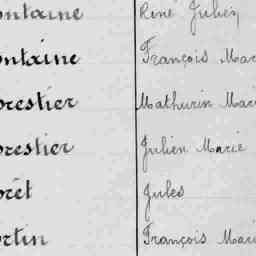 ontaine René Jules
ontaine François Mari
orestier Mathurin Mari
orestier Julien Marie
orêt Jules
ortin François Mari